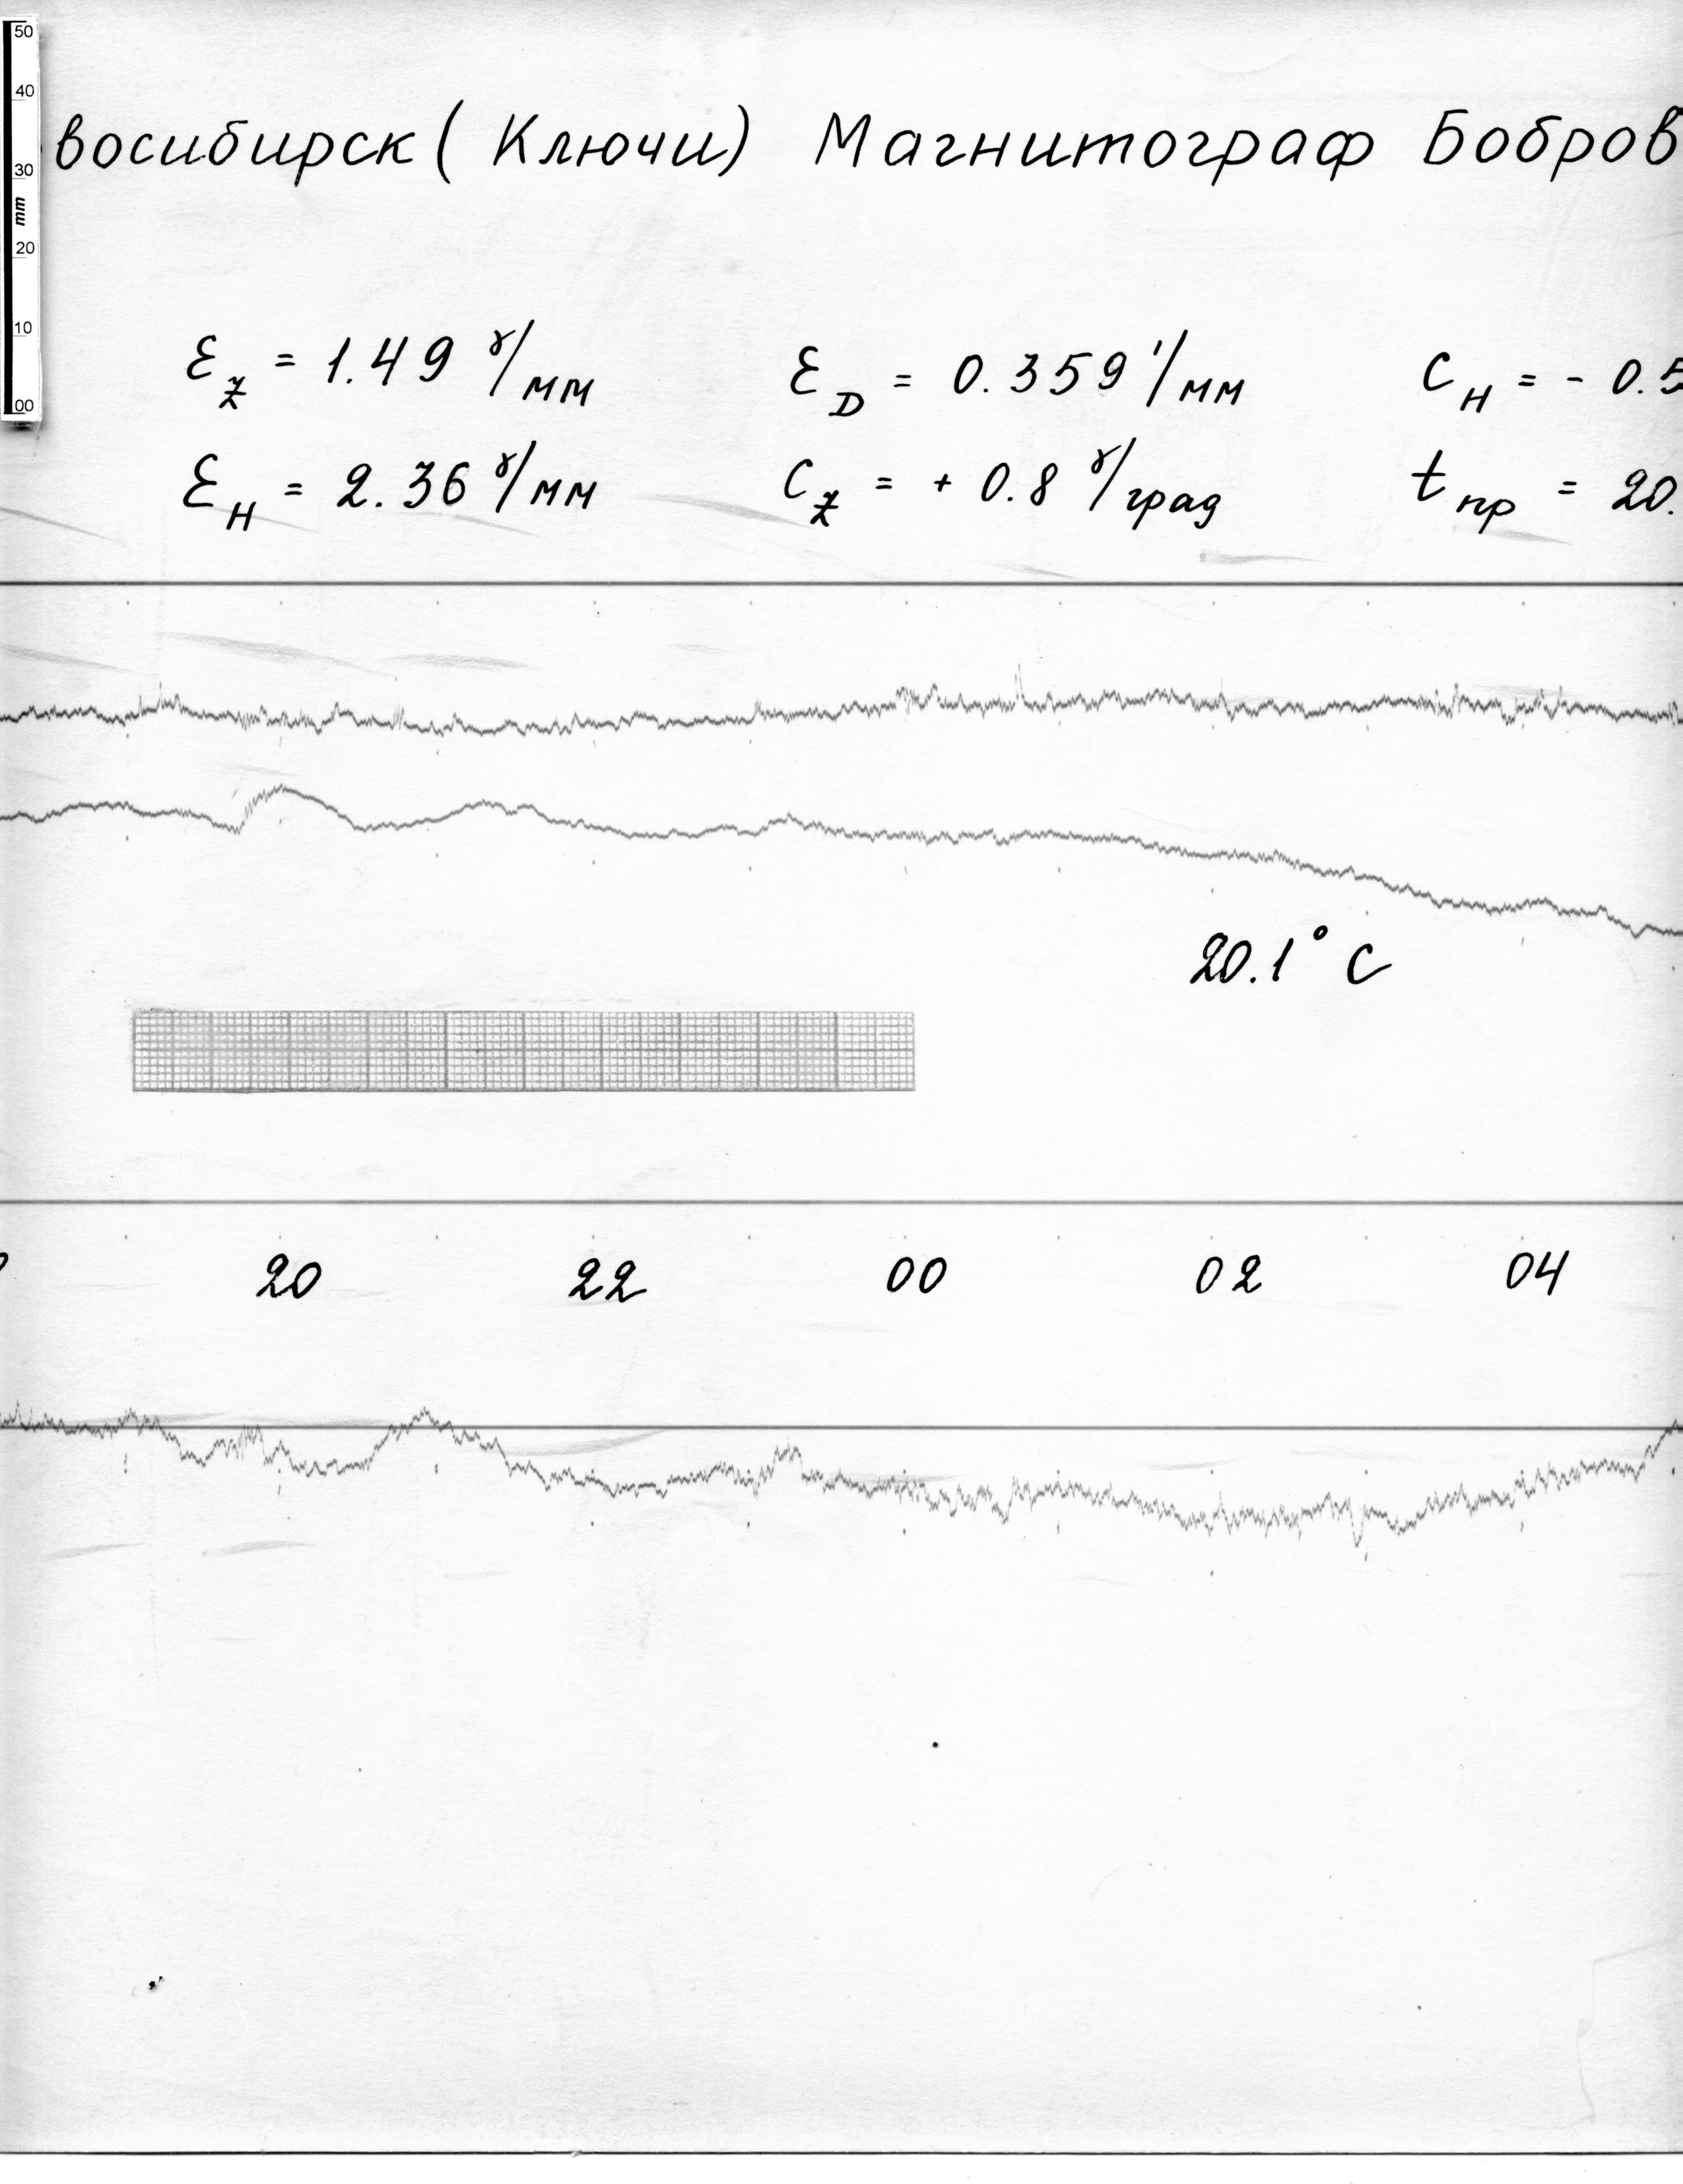 50
40
30
mm
20
10
00
восибирск ( Ключи) Магнитограф Бобров
Ɛ_Z = 1.49 γ/мм Ɛ_D = 0.359 '/мм C_H = - 0.5
Ɛ_H = 2.36 γ/мм C_Z = + 0.8 γ/град t_пр = 20.
20.1° C
20 22 00 02 04